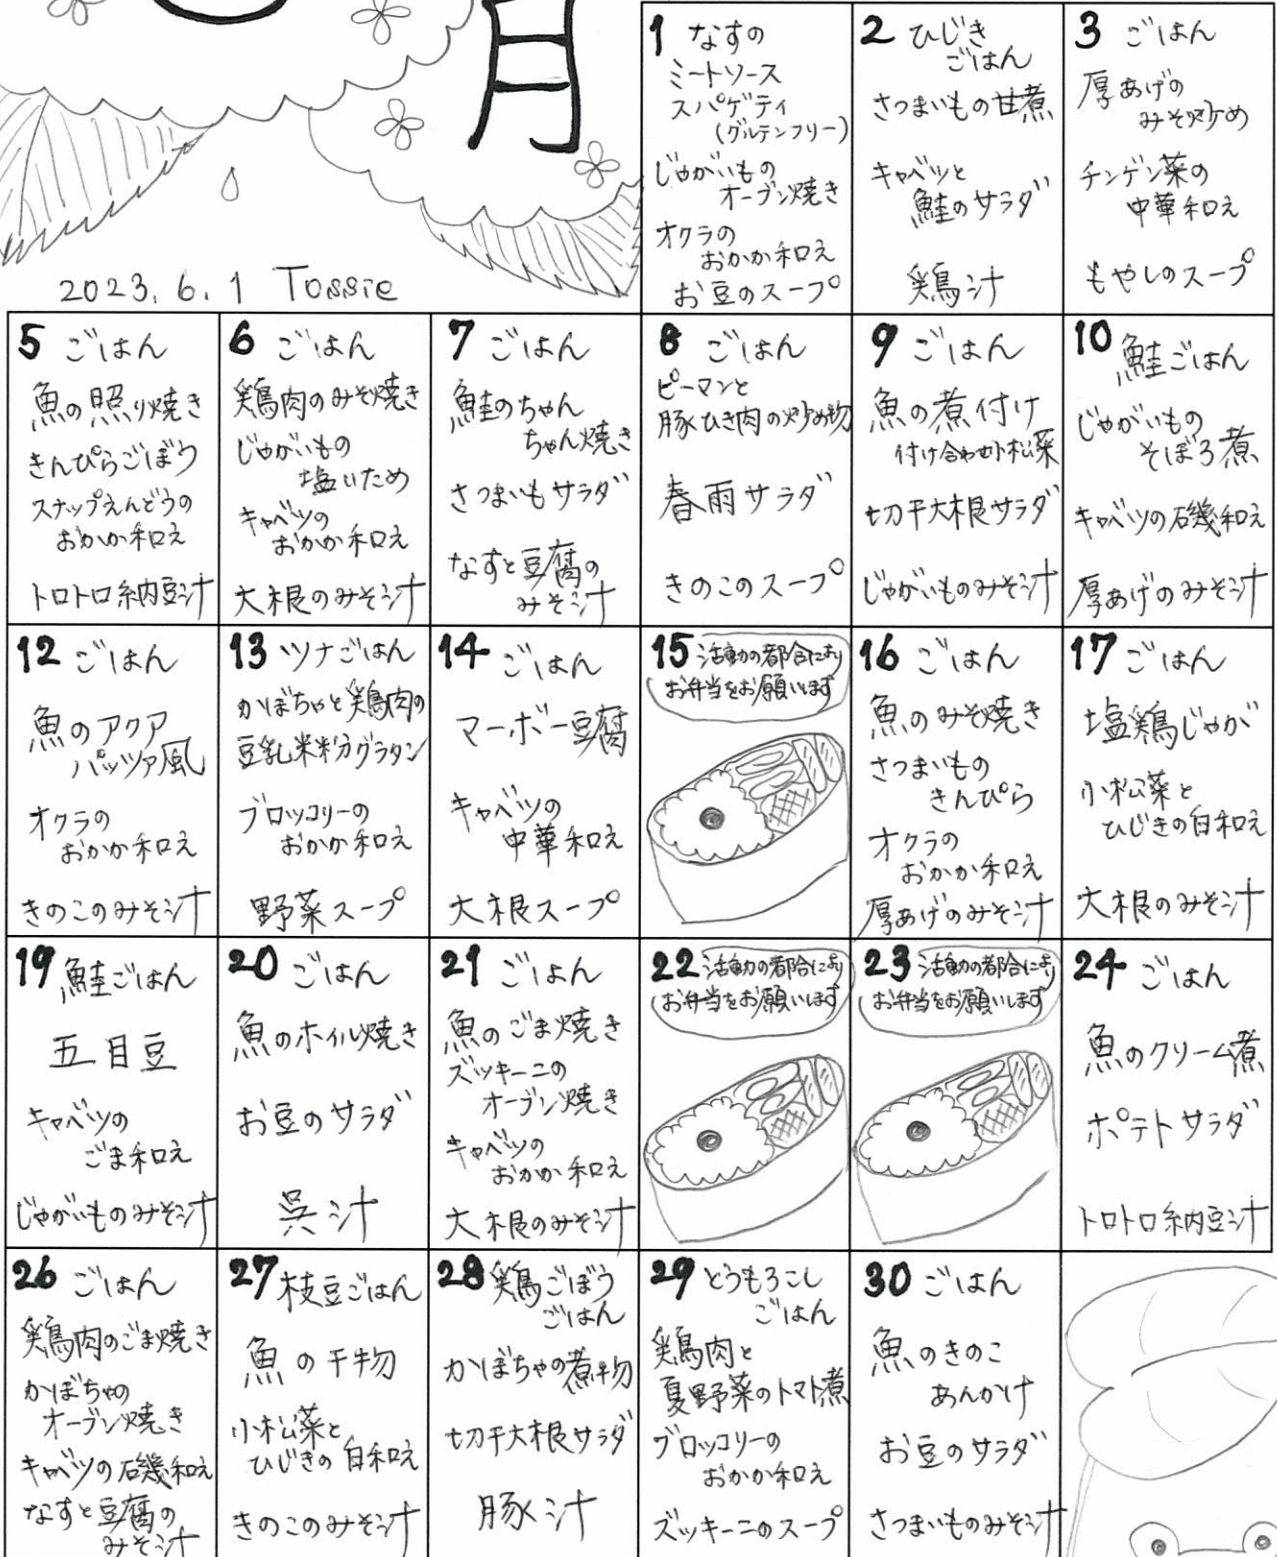 月
2023.6.1 Tossie
1 なすの
ミートソース
スパゲティ
(グルテンフリー)
じゃがいもの
オーブン焼き
オクラの
おかか和え
お豆のスープ
2 ひじき
ごはん
さつまいもの甘煮
キャベツと
鮭のサラダ
鶏汁
3 ごはん
厚あげの
みそ炒め
チンゲン菜の
中華和え
もやしのスープ
5 ごはん
魚の照り焼き
きんぴらごぼう
スナップえんどうの
おかか和え
トロトロ納豆汁
6 ごはん
鶏肉のみそ焼き
じゃがいもの
塩いため
キャベツの
おかか和え
大根のみそ汁
7 ごはん
鮭のちゃん
ちゃん焼き
さつまいもサラダ
なすと豆腐の
みそ汁
8 ごはん
ピーマンと
豚ひき肉の炒め物
春雨サラダ
きのこのスープ
9 ごはん
魚の煮付け
付け合わせ小松菜
切干大根サラダ
じゃがいものみそ汁
10 鮭ごはん
じゃがいもの
そぼろ煮
キャベツの磯和え
厚あげのみそ汁
12 ごはん
魚のアクア
パッツァ風
オクラの
おかか和え
きのこのみそ汁
13 ツナごはん
かぼちゃと鶏肉の
豆乳米粉グラタン
ブロッコリーの
おかか和え
野菜スープ
14 ごはん
マーボー豆腐
キャベツの
中華和え
大根スープ
15 活動の都合により
お弁当をお願いします
16 ごはん
魚のみそ焼き
さつまいもの
きんぴら
オクラの
おかか和え
厚あげのみそ汁
17 ごはん
塩鶏じゃが
小松菜と
ひじきの白和え
大根のみそ汁
19 鮭ごはん
五目豆
キャベツの
ごま和え
じゃがいものみそ汁
20 ごはん
魚のホイル焼き
お豆のサラダ
呉汁
21 ごはん
魚のごま焼き
ズッキーニの
オーブン焼き
キャベツの
おかか和え
大根のみそ汁
22 活動の都合により
お弁当をお願いします
23 活動の都合により
お弁当をお願いします
24 ごはん
魚のクリーム煮
ポテトサラダ
トロトロ納豆汁
26 ごはん
鶏肉のごま焼き
かぼちゃの
オーブン焼き
キャベツの磯和え
なすと豆腐の
みそ汁
27 枝豆ごはん
魚の干物
小松菜と
ひじきの白和え
きのこのみそ汁
28 鶏ごぼう
ごはん
かぼちゃの煮物
切干大根サラダ
豚汁
29 とうもろこし
ごはん
鶏肉と
夏野菜のトマト煮
ブロッコリーの
おかか和え
ズッキーニのスープ
30 ごはん
魚のきのこ
あんかけ
お豆のサラダ
さつまいものみそ汁